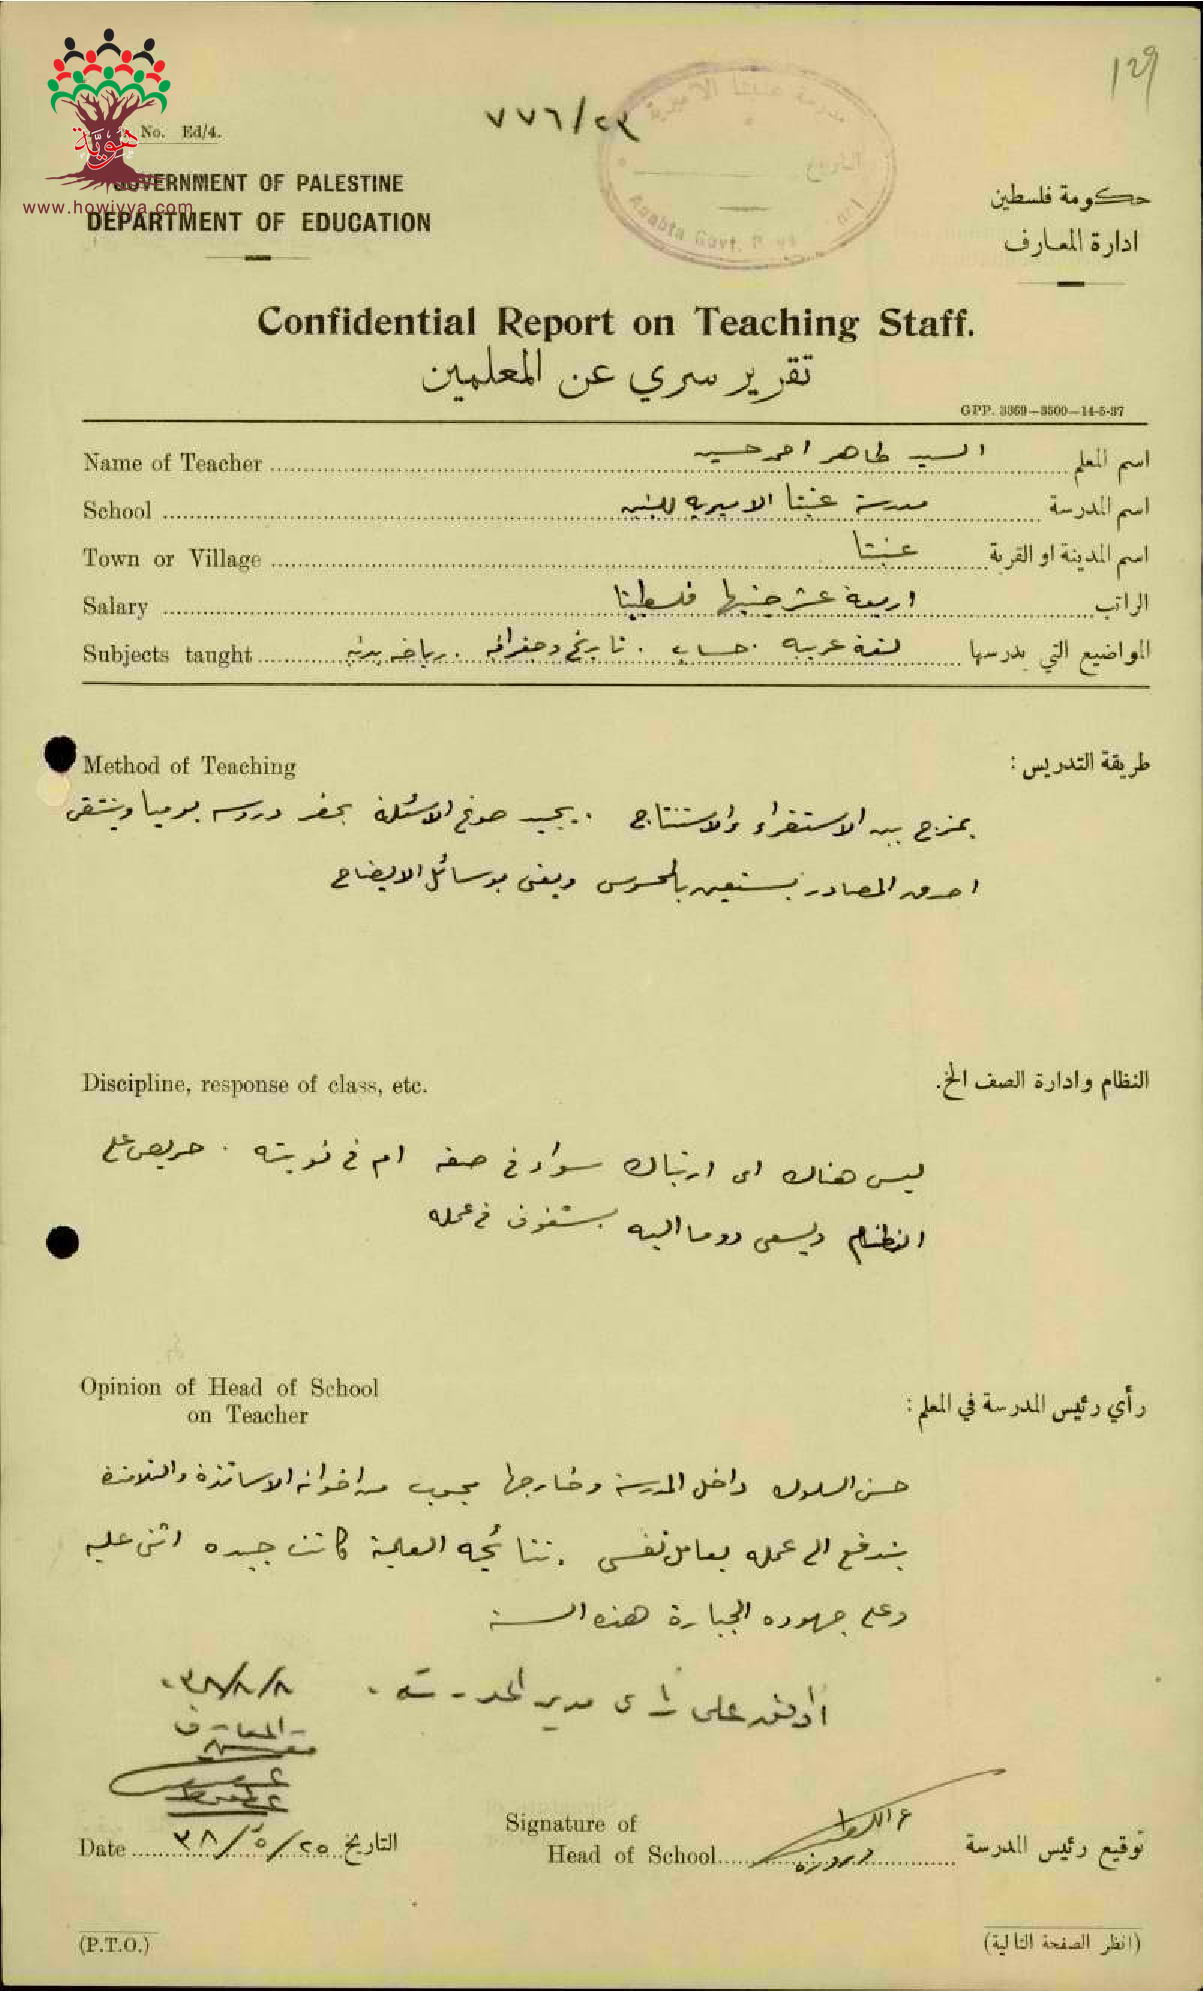 129
٧٧٦/٢٣
هوية
No. Ed/4.
www.howiyya.com
مدرسة عنبتا الاميرية
التاريخ
Anabta Govt.
GOVERNMENT OF PALESTINE
DEPARTMENT OF EDUCATION
حكومة فلسطين
ادارة المعارف
Confidential Report on Teaching Staff.
تقرير سري عن المعلمين
GPP. 3369—3500—14-5-37
Name of Teacher السيد طاهر احمد حسين اسم المعلم
School مدرسة عنبتا الاميرية للبنين اسم المدرسة
Town or Village عنبتا اسم المدينة او القرية
Salary اربعة عشر جنيها فلسطينيا الراتب
Subjects taught لغة عربية . حساب . تاريخ وجغرافيه . رياضه بدنيه المواضيع التي يدرسها
Method of Teaching طريقة التدريس :
يمزج بين الاستقراء والاستنتاج . يجيد صوغ الاسئلة يحضر دروسه يوميا وينتقي
المصادر يستعين بالمحسوس ويعنى بوسائل الايضاح
Discipline, response of class, etc. النظام وادارة الصف الخ.
ليس هناك اى ارتباك سواء في صفه ام في نوبته . حريص على
النظام ويسعى دوما اليه في عمله
Opinion of Head of School
on Teacher
رأي رئيس المدرسة في المعلم :
حسن السلوك داخل المدرسة وخارجها محبوب من اخوانه الاساتذة والتلامذة
يندفع الى عمله بعامل نفسى . نتائجه العلمية كانت جيده اثنى عليه
وعلى جهوده الجبارة هذه السنة
أوافق على رأى مدير المدرسة .
٣٨/٨/٨
المعارف
Date ٢٥/٥/٣٨ التاريخ
Signature of
Head of School دروزه توقيع رئيس المدرسة
(P.T.O.)
(انظر الصفحة التالية)